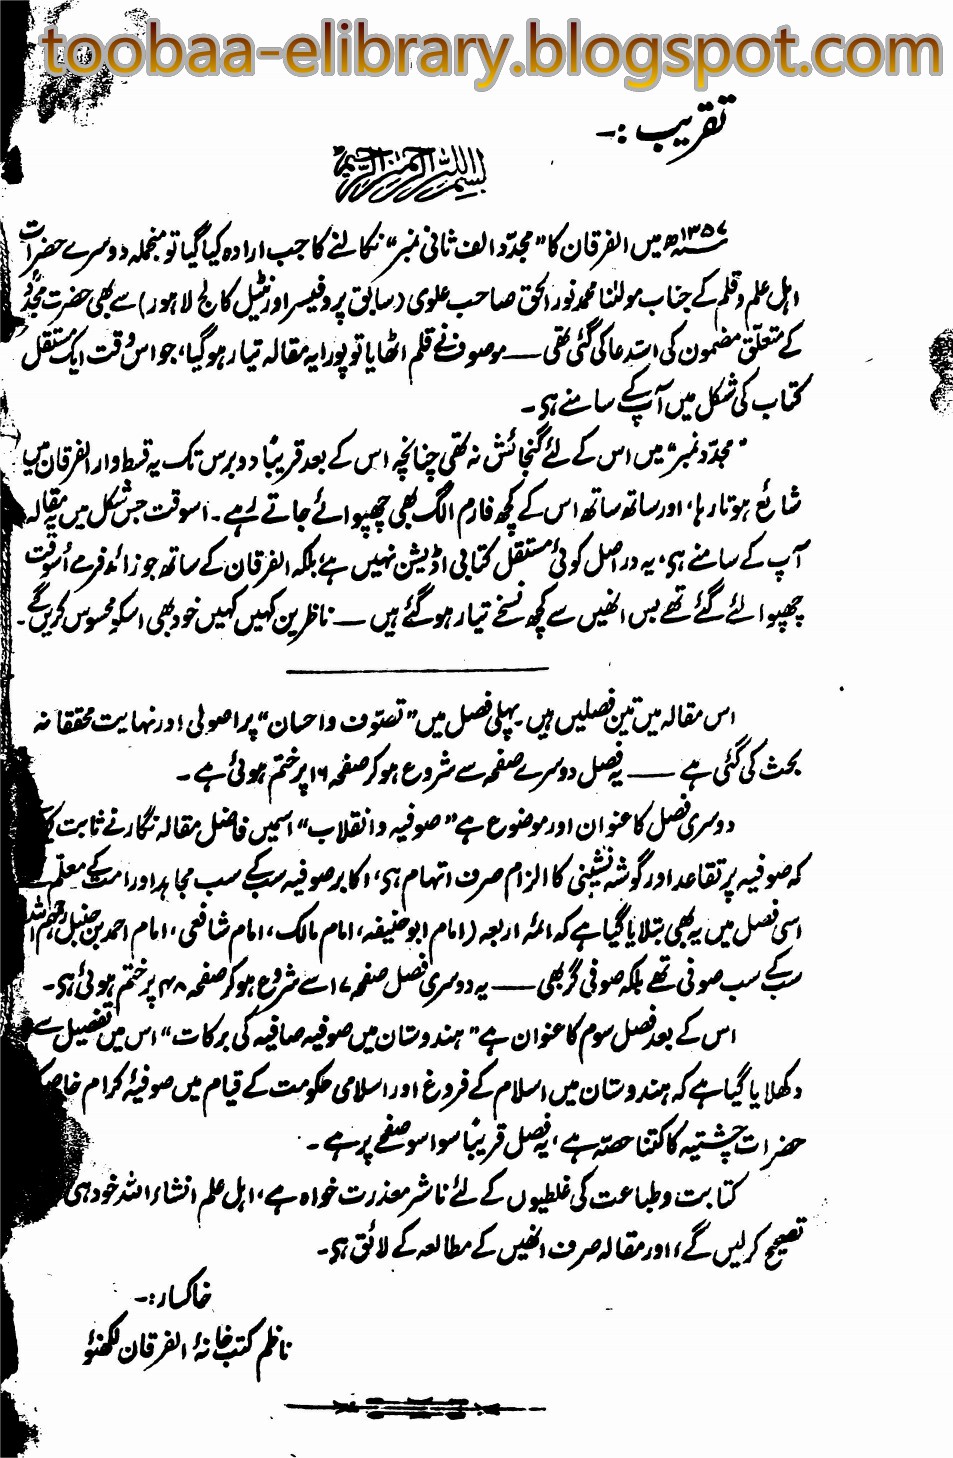 toobaa-elibrary.blogspot.com
تقریب :-
بسم اللہ الرحمن الرحیم
۱۳۵۷ھ میں الفرقان کا "مجدد الف ثانی نمبر" نکالنے کا جب ارادہ کیا گیا تو منجملہ دوسرے حضرات
اہل علم و قلم کے جناب مولٰنا محمد نور الحق صاحب علوی (سابق پروفیسر اورنٹیل کالج لاہور) سے بھی حضرت مجددؒ
کے متعلق مضمون کی استدعا کی گئی تھی — موصوف نے قلم اٹھایا تو پورا یہ مقالہ تیار ہو گیا، جو اس وقت ایک مستقل
کتاب کی شکل میں آپ کے سامنے ہی۔
"مجدد نمبر" میں اس کے لئے گنجائش نہ تھی چنانچہ اس کے بعد قریباً دو برس تک یہ قسط وار الفرقان میں
شائع ہوتا رہا، اور ساتھ ساتھ اس کے کچھ فارم الگ بھی چھپوائے جاتے رہے۔ اسوقت جس شکل میں یہ مقالہ
آپ کے سامنے ہی، یہ دراصل کوئی مستقل کتابی اڈیشن نہیں ہے بلکہ الفرقان کے ساتھ جو زائد فرمے اُسوقت
چھپوا لئے گئے تھے بس انھیں سے کچھ نسخے تیار ہو گئے ہیں — ناظرین کہیں کہیں خود بھی اسکو محسوس کریں گے۔
اس مقالہ میں تین فصلیں ہیں پہلی فصل میں "تصوّف و احسان" پر اصولی اور نہایت محققانہ
بحث کی گئی ہے — یہ فصل دوسرے صفحہ سے شروع ہو کر صفحہ ۱۶ پر ختم ہوئی ہے۔
دوسری فصل کا عنوان اور موضوع ہے "صوفیہ و انقلاب" اسمیں فاضل مقالہ نگار نے ثابت کیا
کہ صوفیہ پر تقاعد اور گوشہ نشینی کا الزام صرف اتہام ہی، اکابر صوفیہ سب کے سب مجاہد اور امت کے معلم
اسی فصل میں یہ بھی بتلایا گیا ہے کہ ائمہ اربعہ (امام ابوحنیفہ، امام مالک، امام شافعی، امام احمد بن حنبل رحمہم اللہ
سب کے سب صوفی تھے بلکہ صوفی گر بھی — یہ دوسری فصل صفحہ ۱۷ سے شروع ہو کر صفحہ ۴۸ پر ختم ہوئی ہی۔
اس کے بعد فصل سوم کا عنوان ہے "ہندوستان میں صوفیہ صافیہ کی برکات" اس میں تفصیل سے
دکھلایا گیا ہے کہ ہندوستان میں اسلام کے فروغ اور اسلامی حکومت کے قیام میں صوفیۂ کرام خاصکر
حضرات چشتیہ کا کتنا حصّہ ہے، یہ فصل قریباً سوا سو صفحے پر ہے۔
کتابت و طباعت کی غلطیوں کے لئے ناشر معذرت خواہ ہے، اہل علم انشاء اللہ خود ہی
تصحیح کر لیں گے، اور مقالہ صرف انھیں کے مطالعہ کے لائق ہی۔
خاکسار :-
ناظم کتب خانۂ الفرقان لکھنؤ